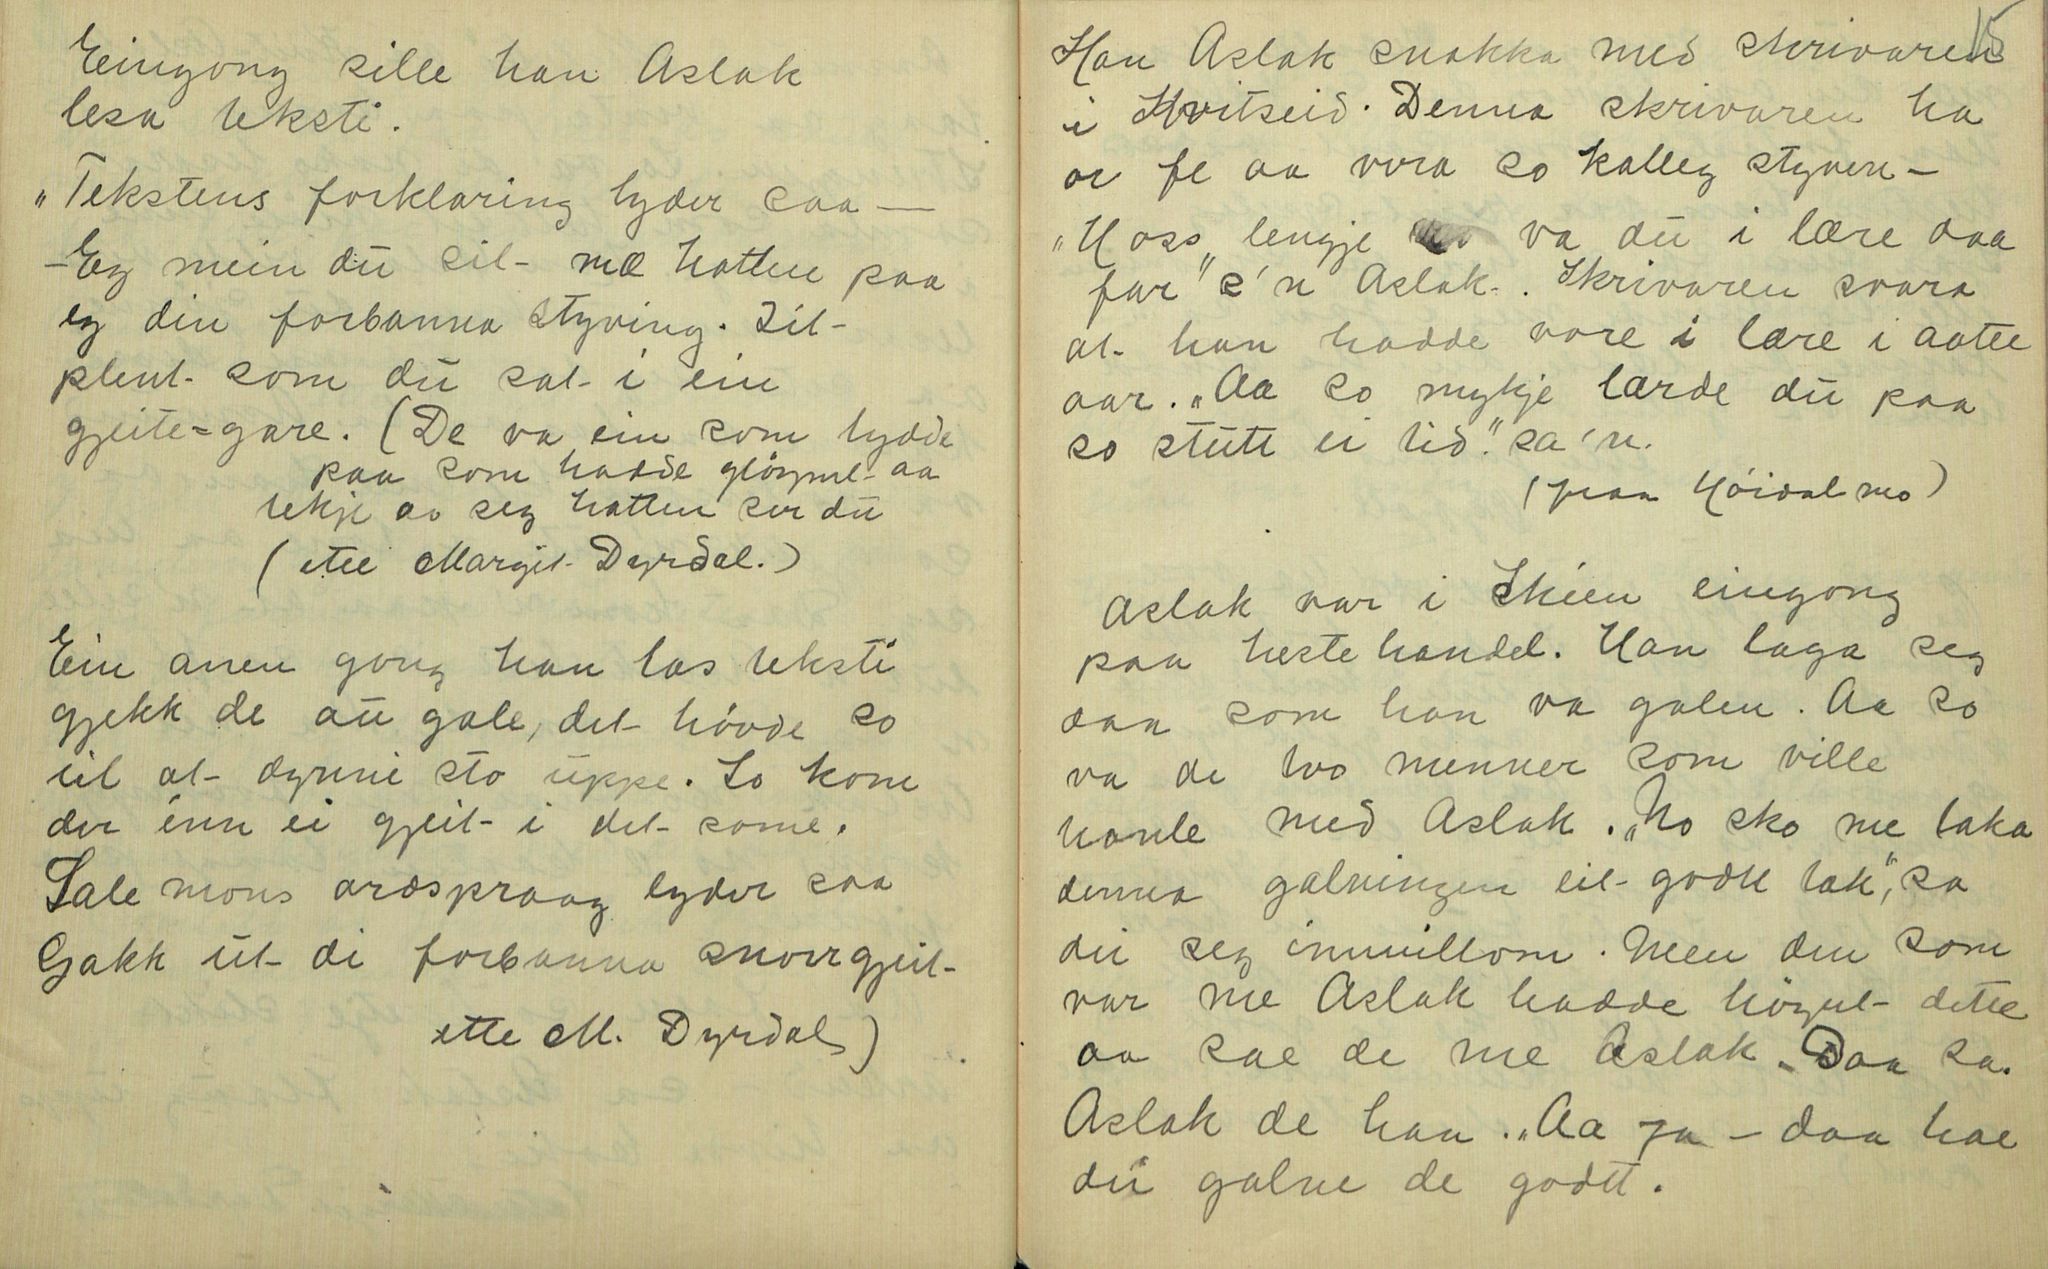 Eingong sille han Aslak
lesa teksti.
"Tekstens forklaring lyder saa —
- Eg mein du sit mæ hatten paa
eg din forbanna styving. Sit
plent som du sat i ein
gjeite=gare. (De va ein som lydde
paa som hadde glöymt aa
tekje av seg hatten ser du
(ette Margit Dyrdal.)
Ein anen gong han las teksti
gjekk de au gale, det hövde so
til at dynni sto uppe. So kom
der inn ei gjeit i det same.
Salemons ordspraag lyder saa
Gakk ut di forbanna snorrgjeit
ette M. Dyrdal)
15
Han Aslak snakka med skrivaren
i Kvitseid. Denna skrivaren ha
or fe aa vera so kalleg styven -
"Hoss lengje va du i lære daa
far" s'n Aslak. Skrivaren svara
at han hadde vore i lære i aatte
aar. "Aa so mykje lærde du paa
so stutt ei tid." sa'n.
(fraa Höidalmo)
Aslak var i Skien eingong
paa hestehandel. Han laga seg
daa som han va galen. Aa so
va de two menner som ville
hanle med Aslak. "No sko me taka
denna galningen eit godt tak", sa
dei seg imillom. Men den som
var me Aslak hadde höyrt dette
aa sae de me Aslak. Daa sa
Aslak de han. "Aa ja - daa hae
du galne de godt.